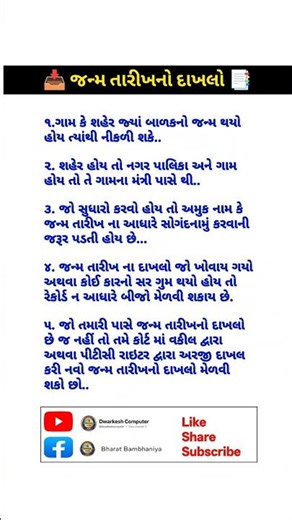 📥 જન્મ તારીખનો દાખલો 📑
૧.ગામ કે શહેર જ્યાં બાળકનો જન્મ થયો
હોય ત્યાંથી નીકળી શકે..
૨. શહેર હોય તો નગર પાલિકા અને ગામ
હોય તો તે ગામના મંત્રી પાસે થી..
૩. જો સુધારો કરવો હોય તો અમુક નામ કે
જન્મ તારીખ ના આધારે સોગંદનામું કરવાની
જરૂર પડતી હોય છે...
૪. જન્મ તારીખ ના દાખલો જો ખોવાય ગયો
અથવા કોઈ કારનો સર ગુમ થયો હોય તો
રેકોર્ડ ન આધારે બીજો મેળવી શકાય છે.
૫. જો તમારી પાસે જન્મ તારીખનો દાખલો
છે જ નહીં તો તમે કોર્ટ માં વકીલ દ્વારા
અથવા પીટીસી રાઇટર દ્વારા અરજી દાખલ
કરી નવો જન્મ તારીખનો દાખલો મેળવી
શકો છો..
Dwarkesh Computer
Bharat Bambhaniya
Like
Share
Subscribe